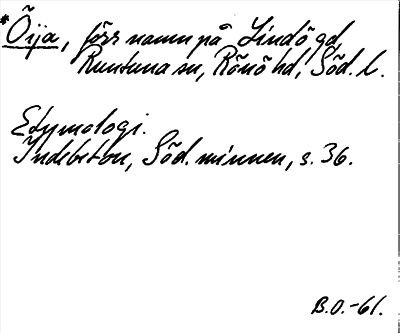 *Öija, förr namn på Lindö gd
Runtuna sn, Rönö hd, Söd. l.
Etymologi.
Indebetou, Söd. minnen, s. 36.
B.O.-61.